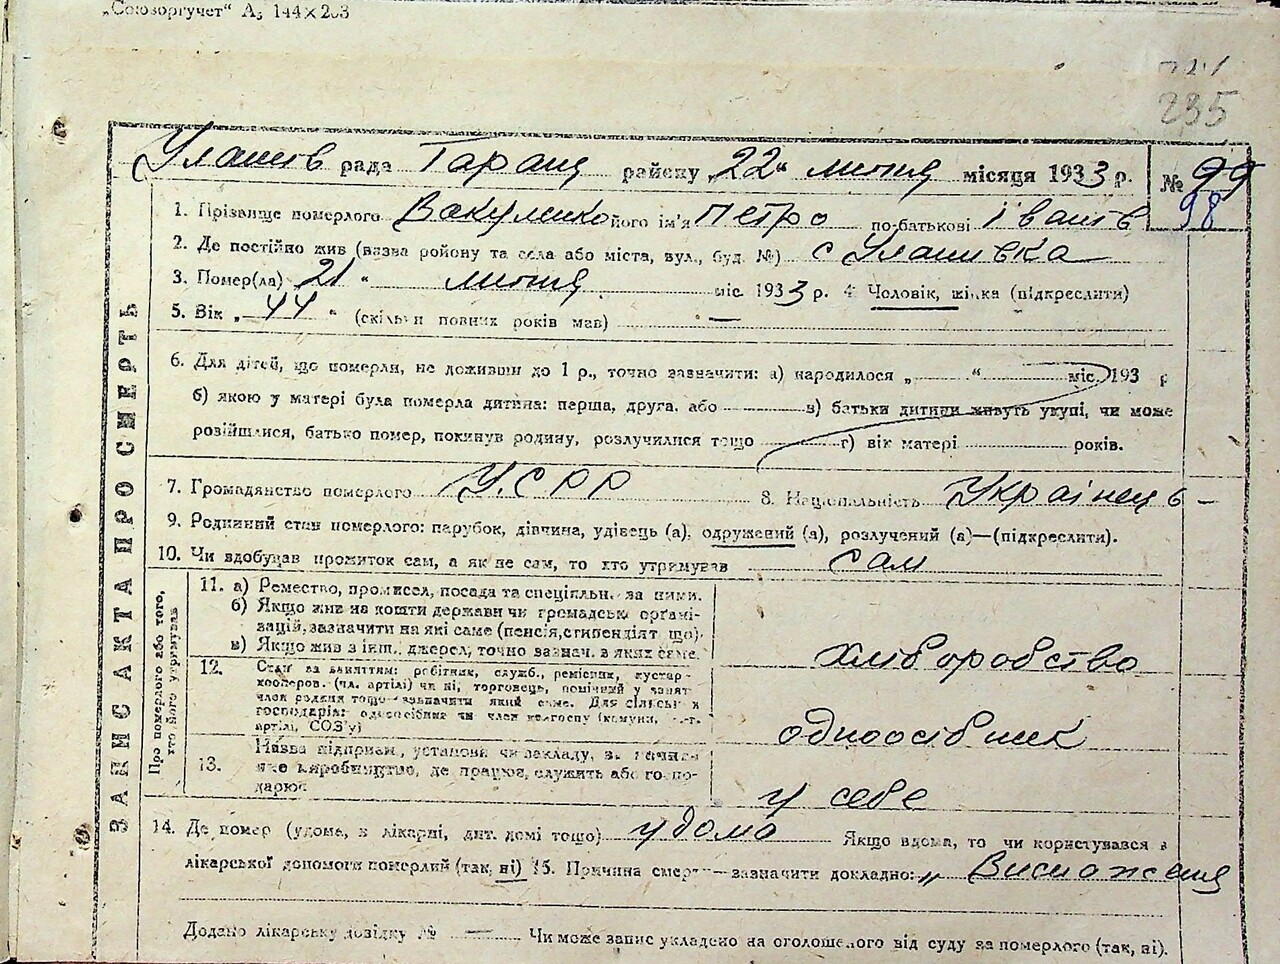 „Союзоргучет“ А5 144×203
235
Уланів рада Таращ району „22“ лютня місяця 1933 р. № 99
98
1. Прізвище померлого Вакуленко його ім'я Петро по-батькові Іванів
2. Де постійно жив (назва району та села або міста, вул., буд. №) с Уланивка
3. Помер(ла) 21 “ лютня міс. 1933 р. 4. Чоловік, жінка (підкреслити)
5. Вік „ 44 “ (скільки повних років мав) —
6. Для дітей, що померли, не доживши до 1 р., точно зазначити: а) народилося „ “ міс. 193 р
б) якою у матері була померла дитина: перша, друга, або в) батьки дитини живуть укупі, чи може
розійшлися, батько помер, покинув родину, розлучилися тощо г) вік матері років.
7. Громадянство померлого У.С.Р.Р 8. Національність Українець –
9. Родинний стан померлого: парубок, дівчина, удівець (а), одружений (а), розлучений (а)—(підкреслити).
10. Чи здобував прожиток сам, а як не сам, то хто утримував сам
ЗАПИС АКТА ПРО СМЕРТЬ
Про померлого або того, хто його утримував
11. а) Ремество, промисел, посада та спеціяльн. за ними.
б) Якщо жив на кошти держави чи громадськ. органі-
зацій, зазначити на які саме (пенсія, стипендіят що).
в) Якщо жив з інш. джерел, точно зазнач. в яких саме.
хліборобство
12. Стан за заняттям: робітник, служб., ремісник, кустар-
кооперов. (чл. артілі) чи ні, торговець, помічний у занят.
член родини тощо—зазначити який саме. Для сільськ.
господарів: одноосібник чи член колгоспу (комуни,
артілі, СОЗ'у)
одноосібник
13. Назва підприєм., установи чи закладу,
яке виробництво, де працює, служить або госпо-
дарює
у себе
14. Де помер (удома, в лікарні, дит. домі тощо) удома Якщо вдома, то чи користувався з
лікарської допомоги померлий (так, ні) 15. Причина смерти—зазначити докладно: „ Виснаження
Додано лікарську довідку № — Чи може запис укладено на оголошеного від суду за померлого (так, ні).